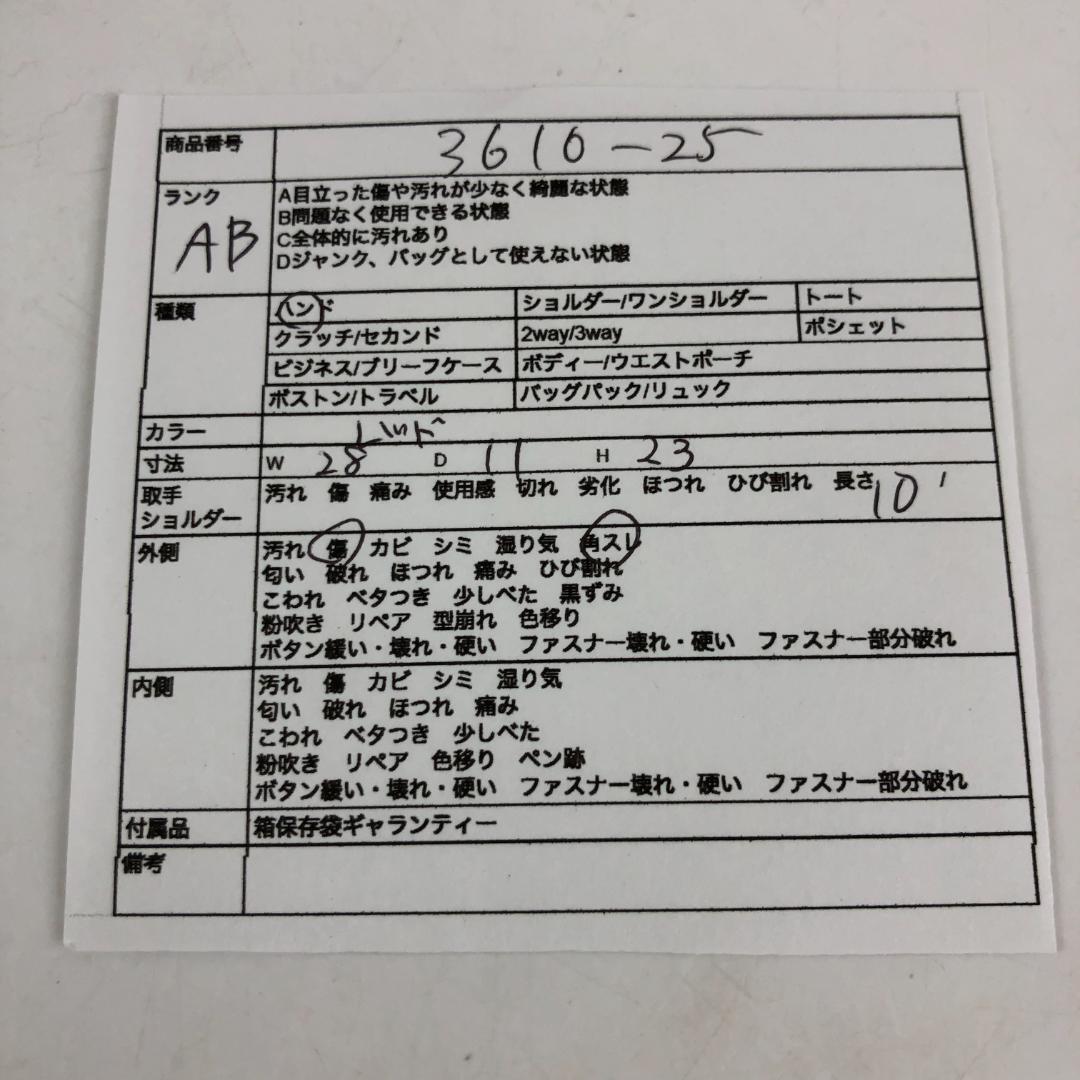 商品番号 3610-25
ランク AB
A目立った傷や汚れが少なく綺麗な状態
B問題なく使用できる状態
C全体的に汚れあり
Dジャンク、バッグとして使えない状態
種類 ハンド ショルダー/ワンショルダー トート
クラッチ/セカンド 2way/3way ポシェット
ビジネス/ブリーフケース ボディー/ウエストポーチ
ボストン/トラベル バッグパック/リュック
カラー レッド
寸法 W 28 D 11 H 23
取手 汚れ 傷 痛み 使用感 切れ 劣化 ほつれ ひび割れ 長さ 10
ショルダー
外側 汚れ 傷 カビ シミ 湿り気 角スレ
匂い 破れ ほつれ 痛み ひび割れ
こわれ ベタつき 少しべた 黒ずみ
粉吹き リペア 型崩れ 色移り
ボタン緩い・壊れ・硬い ファスナー壊れ・硬い ファスナー部分破れ
内側 汚れ 傷 カビ シミ 湿り気
匂い 破れ ほつれ 痛み
こわれ ベタつき 少しべた
粉吹き リペア 色移り ペン跡
ボタン緩い・壊れ・硬い ファスナー壊れ・硬い ファスナー部分破れ
付属品 箱保存袋ギャランティー
備考